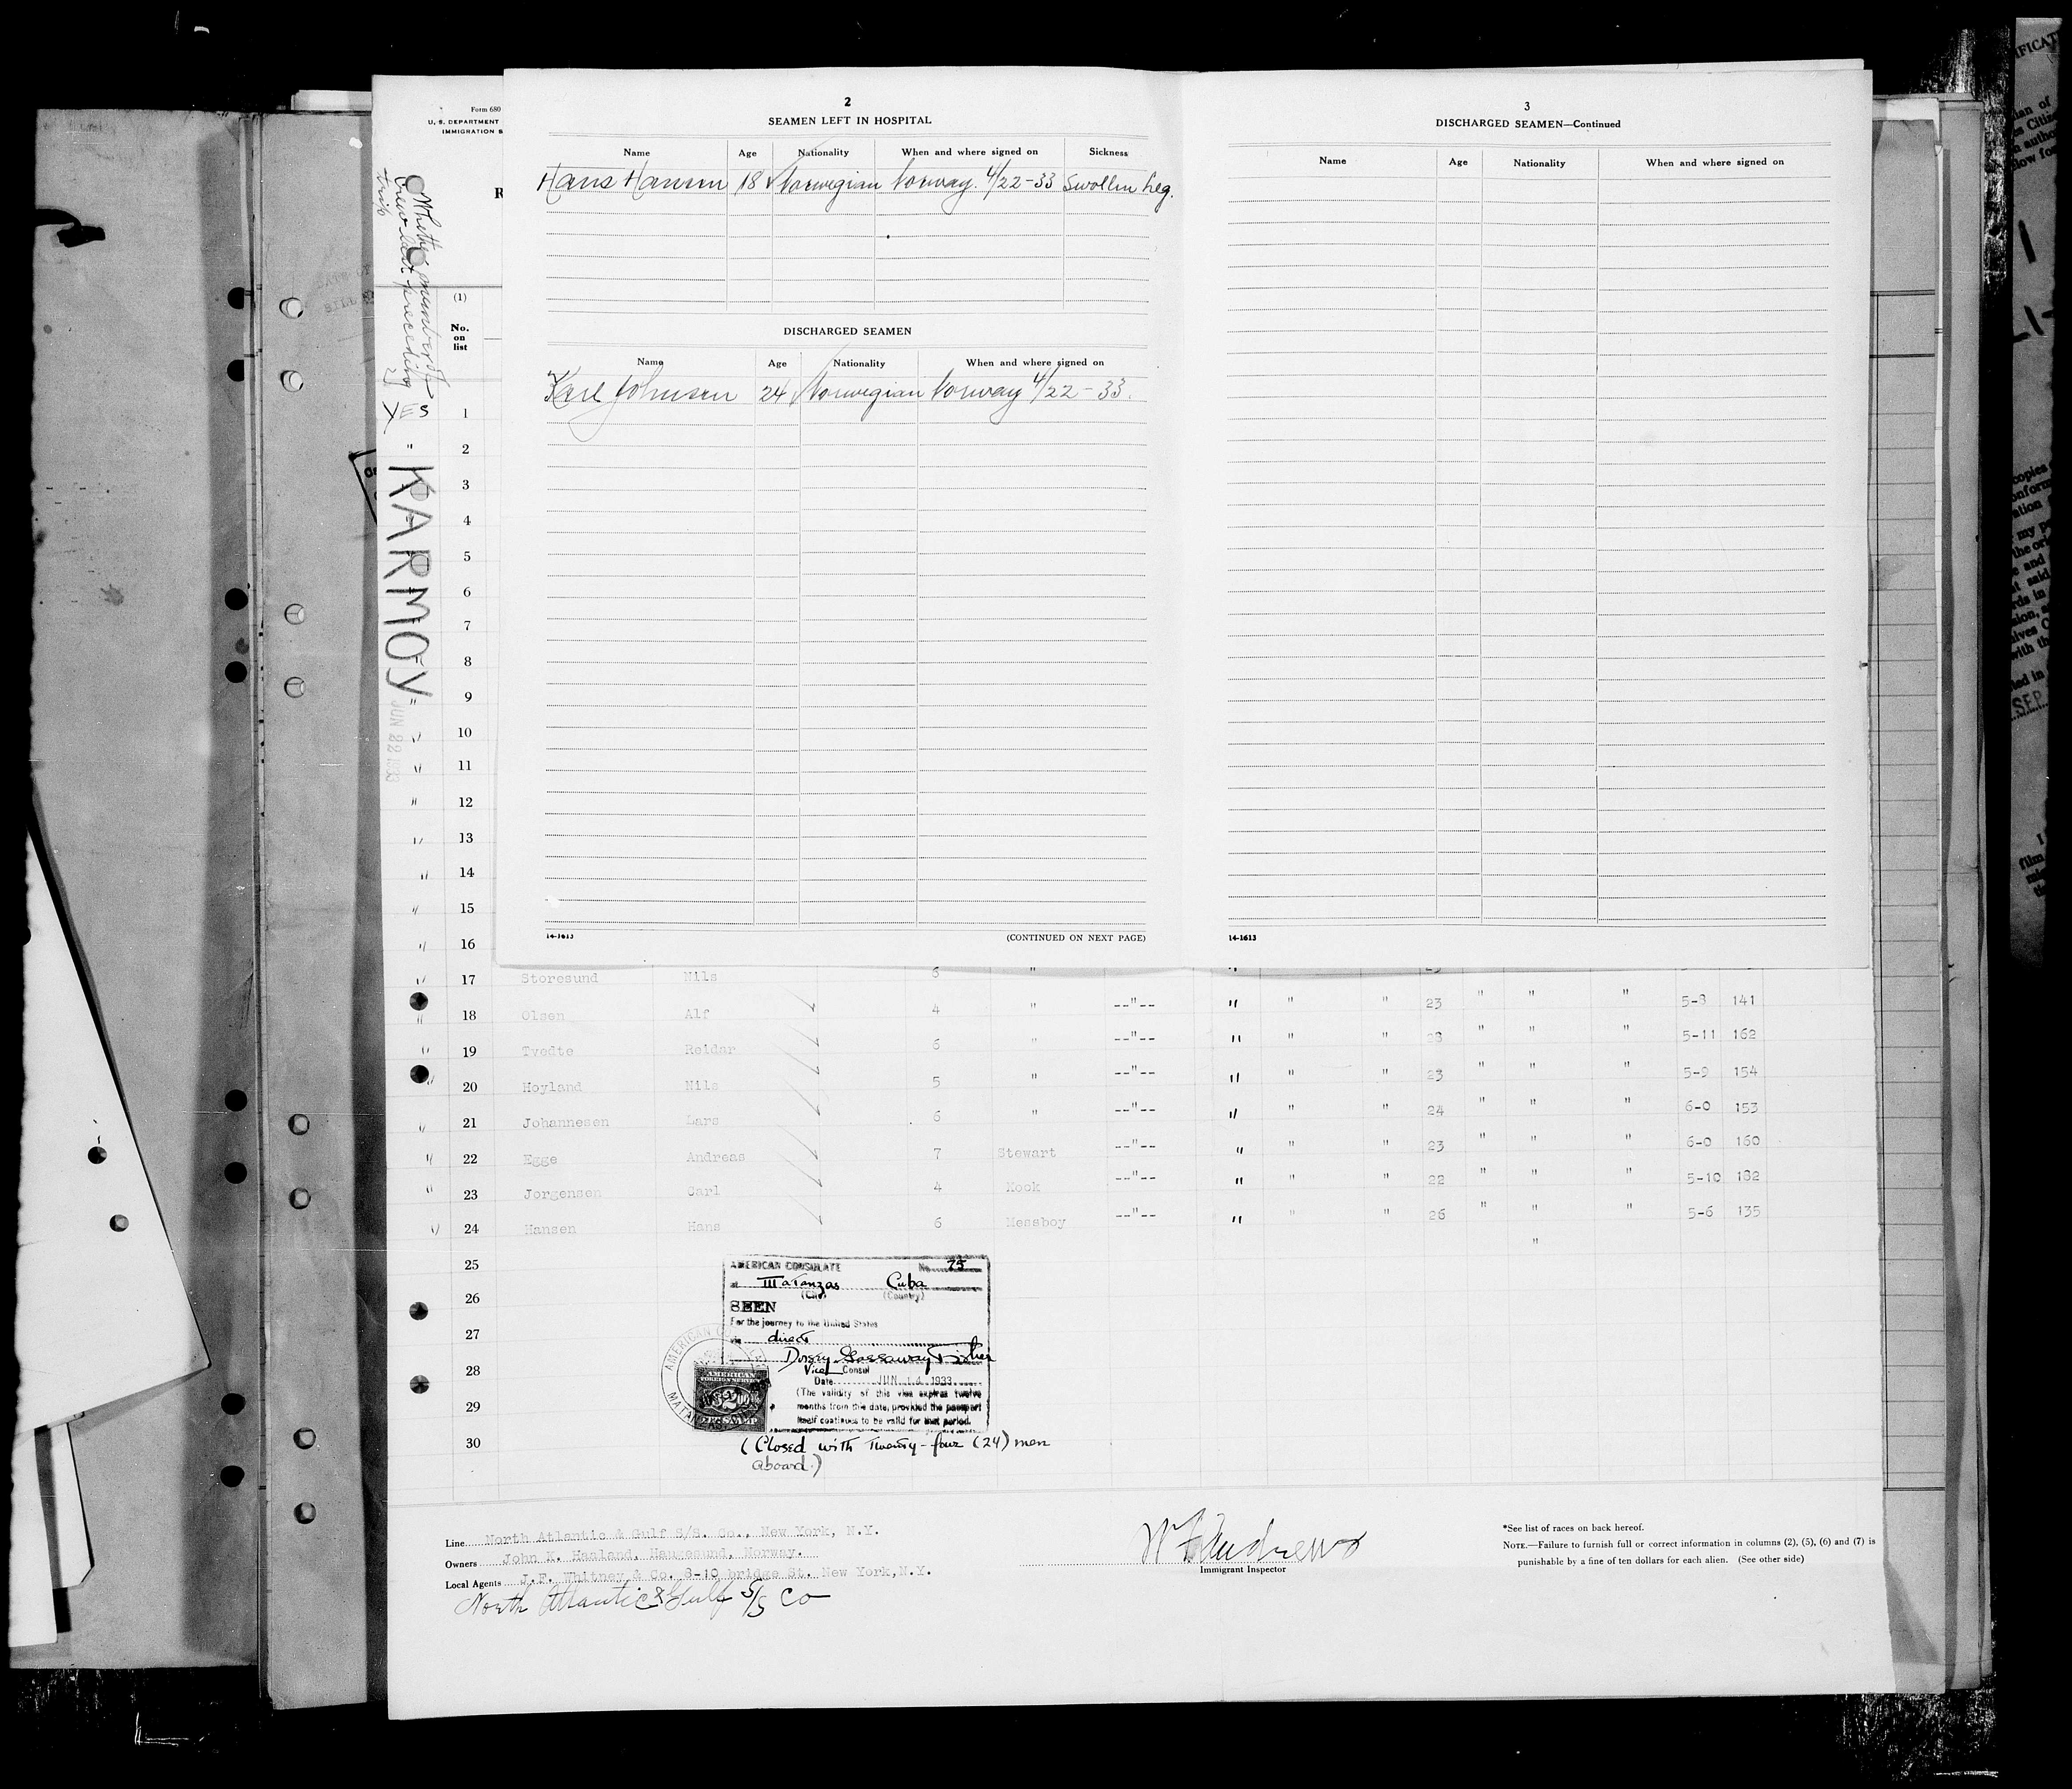 2
SEAMEN LEFT IN HOSPITAL
Name Age Nationality When and where signed on Sickness
Hans Hansen 18 Norwegian Norway. 4/22-33 Swollen Leg.
DISCHARGED SEAMEN
Name Age Nationality When and where signed on
Karl Johnsen 24 Norwegian Norway 4/22-33.
14-1613 (CONTINUED ON NEXT PAGE)
3
DISCHARGED SEAMEN—Continued
Name Age Nationality When and where signed on
14-1613
Form 680
U. S. DEPARTMENT
IMMIGRATION S
R
Whether member of
crew last preceding
trip
YES
" KARMOY "
JUN 22 1933
(1)
No.
on
list
1
2
3
4
5
6
7
8
9
10
11
12
13
14
15
16
17 Storesund Nils 6 "
18 Olsen Alf 4 " --"-- " " " 23 " " " 5-8 141
19 Tvedte Reidar 6 " --"-- " " " 28 " " " 5-11 162
20 Hoyland Nils 5 " --"-- " " " 23 " " " 5-9 154
21 Johannesen Lars 6 " --"-- " " " 24 " " " 6-0 153
22 Egge Andreas 7 Stewart --"-- " " " 23 " " " 6-0 160
23 Jorgensen Carl 4 Kook --"-- " " " 22 " " " 5-10 182
24 Hansen Hans 6 Messboy --"-- " " " 26 " " " 5-6 135
"
25
26
27
28
29
30
AMERICAN CONSULATE No. 75
at Matanzas Cuba
(City) (Country)
SEEN
For the journey to the United States
via direct
Dorsey Gassaway Fisher
Vice Consul
Date JUN 14 1933
(The validity of this visa expires twelve
months from this date, provided the passport
itself continues to be valid for that period.
AMERICAN
FOREIGN SERVICE
2
MATANZAS
(Closed with Twenty-four (24) men
aboard.)
Line North Atlantic & Gulf S/S. Co., New York, N.Y.
Owners John K. Haaland, Haugesund, Norway.
Local Agents J.F. Whitney & Co. 8-10 bridge St. New York,N.Y.
North Atlantic & Gulf S/S Co
W F Andrews
Immigrant Inspector
*See list of races on back hereof.
NOTE.—Failure to furnish full or correct information in columns (2), (5), (6) and (7) is
punishable by a fine of ten dollars for each alien. (See other side)